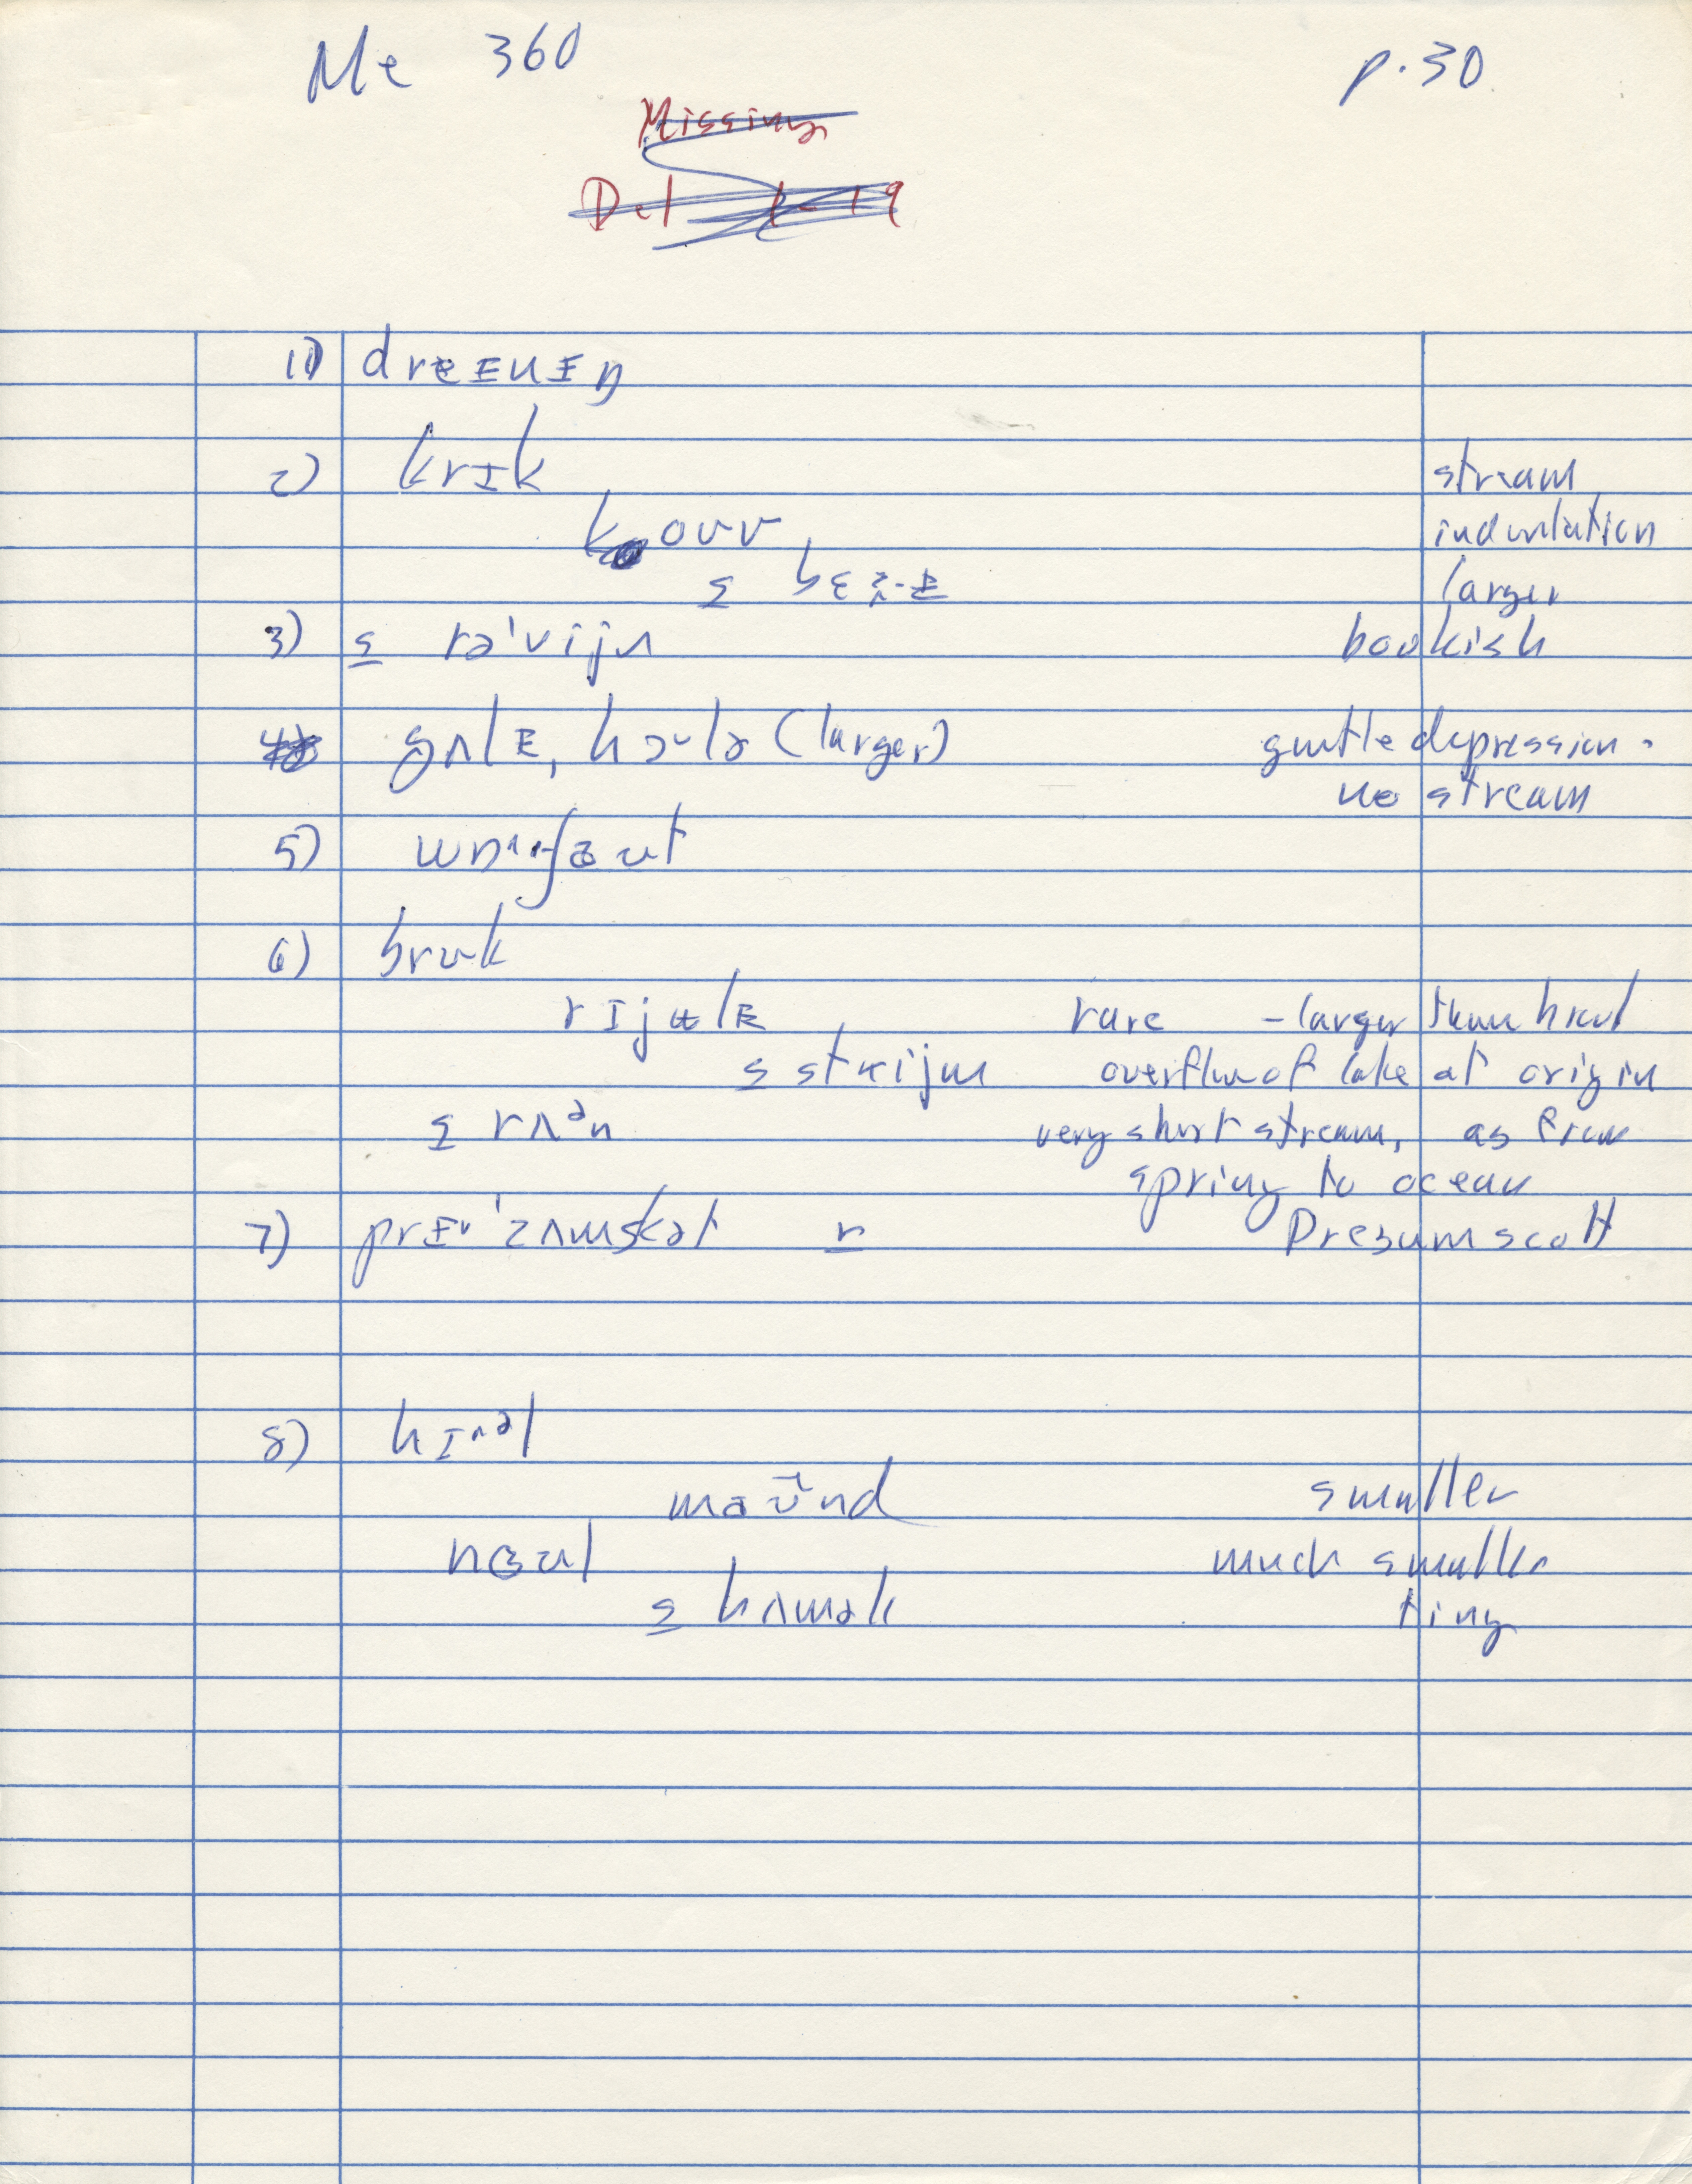 Me 360 p.30
Missing
Del 19
1) dreɪnɪŋ
2) krɪk stream
koʊv indentation
s larger
3) s rə'vijn bookish
4) gʌlɪ, hɔlə (larger) gentle depression -
no stream
5) wɒʃaʊt
6) brʊk
rɪjʉlɪ rare - larger than brook
s strijm overflow of lake at origin
s rʌən very short stream, as from
spring to ocean
7) prɪ'zʌmskət r Presumscott
8) hɪəl
maʊnd smaller
nɵʊl much smaller
s hʌmək tiny